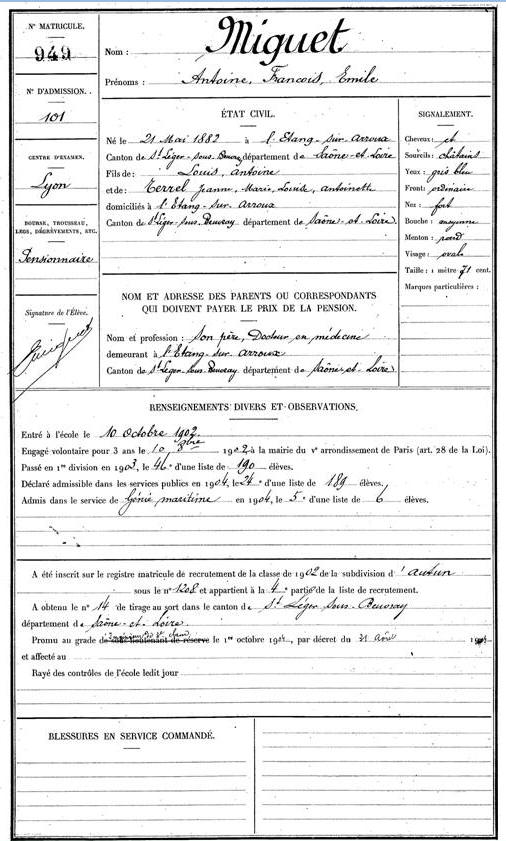 N° MATRICULE.
949
N° D'ADMISSION.
101
CENTRE D'EXAMEN.
Lyon
BOURSE, TROUSSEAU,
LEGS, DÉGRÈVEMENTS, ETC.
Pensionnaire
Signature de l'Élève.
Nom : Miguet
Prénoms : Antoine, François, Emile
ÉTAT CIVIL.
Né le 21 Mai 1882 à l'Etang-sur-arroux
Canton de St Léger-sous-Beuvray département de Saône-et-Loire
Fils de : Louis, antoine
et de : Terrel jeanne, Marie, Louise, antoinette
domiciliés à l'Etang-sur-arroux
Canton de St Léger-sous-Beuvray département de Saône-et-Loire
NOM ET ADRESSE DES PARENTS OU CORRESPONDANTS
QUI DOIVENT PAYER LE PRIX DE LA PENSION.
Nom et profession : Son père, Docteur en médecine
demeurant à l'Etang-sur-arroux
Canton de St Léger-sous-Beuvray département de Saône-et-Loire
SIGNALEMENT.
Cheveux : et
Sourcils : châtains
Yeux : gris bleu
Front : ordinaire
Nez : fort
Bouche : moyenne
Menton : rond
Visage : ovale
Taille : 1 mètre 71 cent.
Marques particulières :
RENSEIGNEMENTS DIVERS ET OBSERVATIONS.
Entré à l'école le 10 Octobre 1902.
Engagé volontaire pour 3 ans le 10 8bre 1902 à la mairie du Ve arrondissement de Paris (art. 28 de la Loi).
Passé en 1re division en 1903, le 46e d'une liste de 190 élèves.
Déclaré admissible dans les services publics en 1904, le 24e d'une liste de 189 élèves.
Admis dans le service de Génie maritime en 1904, le 5e d'une liste de 6 élèves.
A été inscrit sur le registre matricule de recrutement de la classe de 1902 de la subdivision d'autun
sous le n° 1208 et appartient à la 4e partie de la liste de recrutement.
A obtenu le n° 14 de tirage au sort dans le canton de St Léger sous-Beuvray
département de Saône-et-Loire
Promu au grade de sous-lieutenant de réserve le 1er octobre 1904, par décret du 31 Août 1904
et affecté au
Rayé des contrôles de l'école ledit jour
BLESSURES EN SERVICE COMMANDÉ.